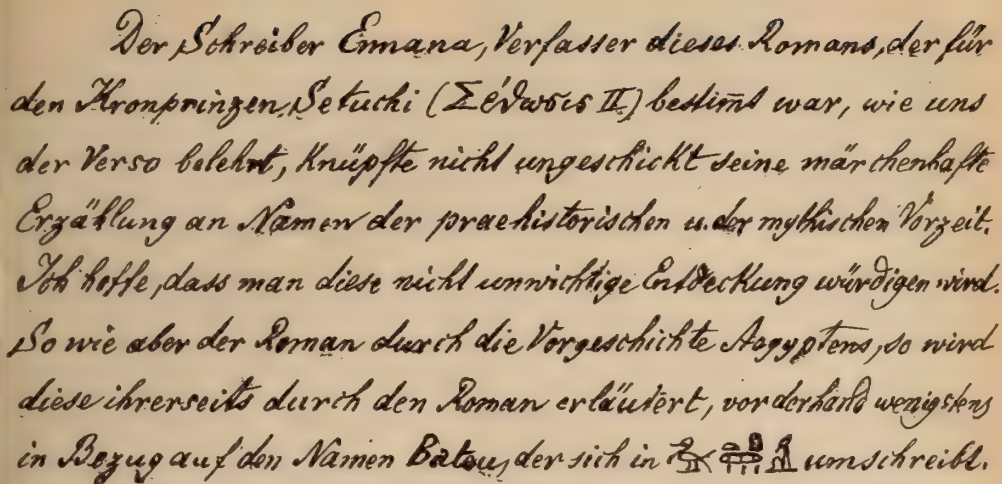 Der Schreiber Ennana, Verfasser dieses Romans, der für
den Kronprinzen Setuchi (Σέθωσις II) bestim̄t war, wie uns
der Verso belehrt, Knüpfte nicht ungeschickt seine märchenhafte
Erzählung an Namen der praehistorischen u. der mythischen Vorzeit.
Ich hoffe, dass man diese nicht unwichtige Entdeckung würdigen wird.
So wie aber der Roman durch die Vorgeschichte Aegyptens, so wird
diese ihrerseits durch den Roman erläutert, vorderhand wenigstens
in Bezug auf den Namen Batou, der sich in umschreibt.